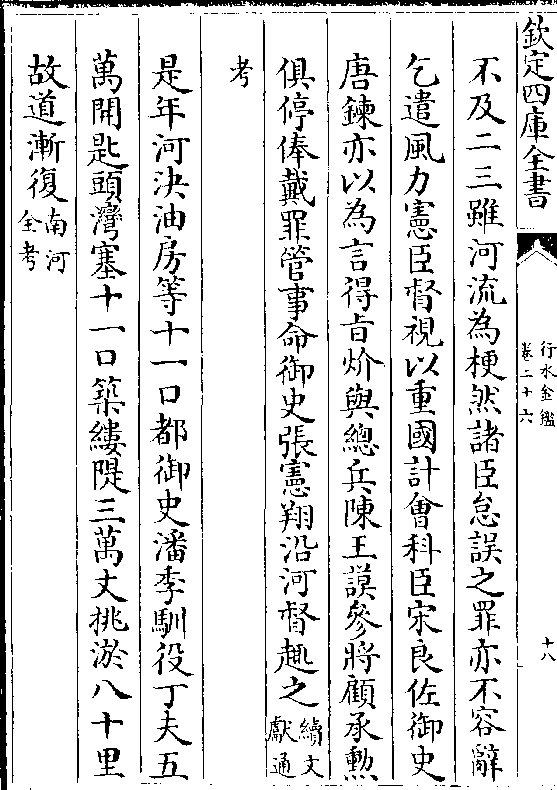 欽定四庫全書
行水金鑑
卷二十六
十八
不及二三雖河流為梗然諸臣怠誤之罪亦不容辭
乞遣風力憲臣督視以重國計會科臣宋良佐御史
唐鍊亦以為言得旨炌與總兵陳王謨參將顧承勲
俱停俸戴罪管事命御史張憲翔沿河督趣之續文獻通
考
是年河決油房等十一口都御史潘季馴役丁夫五
萬開匙頭灣塞十一口築縷隄三萬丈挑淤八十里
故道漸復南河全考